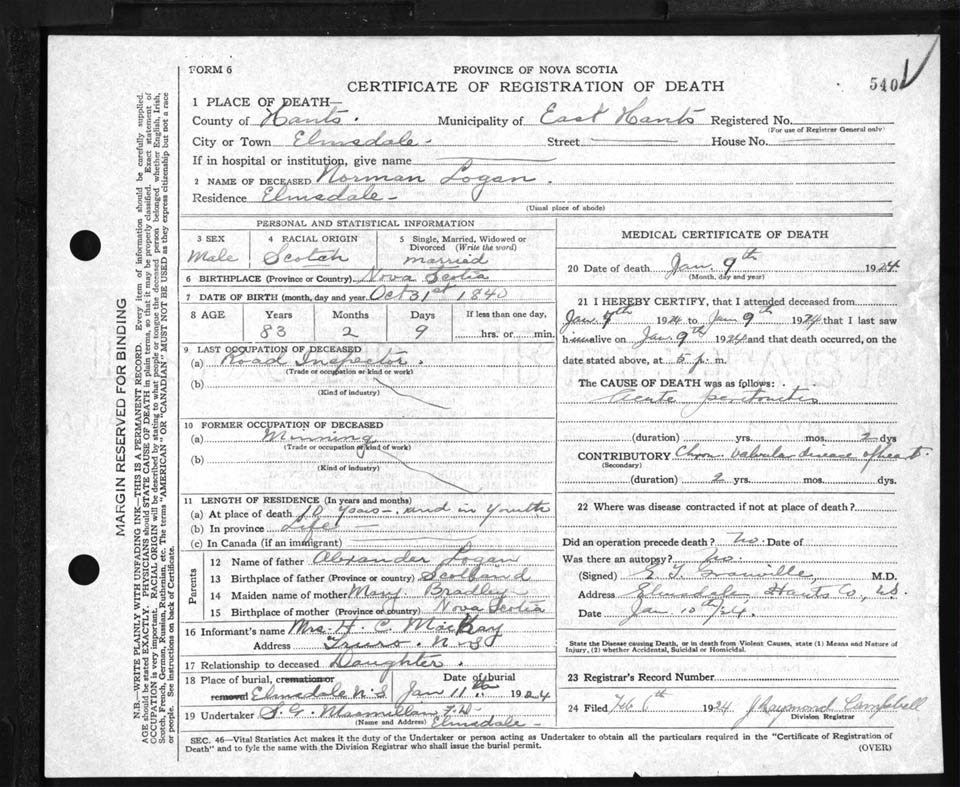 FORM 6
PROVINCE OF NOVA SCOTIA
CERTIFICATE OF REGISTRATION OF DEATH
540
1 PLACE OF DEATH—
County of Hants. Municipality of East Hants Registered No.
(For use of Registrar General only)
City or Town Elmsdale - Street House No.
If in hospital or institution, give name
2 NAME OF DECEASED Norman Logan.
Residence Elmsdale -
(Usual place of abode)
PERSONAL AND STATISTICAL INFORMATION
3 SEX 4 RACIAL ORIGIN 5 Single, Married, Widowed or
Divorced (Write the word)
Male Scotch married
6 BIRTHPLACE (Province or Country) Nova Scotia
7 DATE OF BIRTH (month, day and year) Oct 31st 1840
8 AGE Years Months Days If less than one day,
83 2 9 hrs. or min.
9 LAST OCCUPATION OF DECEASED
(a) Road Inspector.
(Trade or occupation or kind or work)
(b)
(Kind of industry)
10 FORMER OCCUPATION OF DECEASED
(a)
(Trade or occupation or kind of work)
(b)
(Kind of industry)
11 LENGTH OF RESIDENCE (In years and months)
(a) At place of death 10 years -. and in youth
(b) In province Life -
(c) In Canada (if an immigrant)
Parents
12 Name of father Alexander Logan
13 Birthplace of father (Province or country) Scotland
14 Maiden name of mother Mary Bradley
15 Birthplace of mother (Province or country) Nova Scotia
16 Informant's name Mrs. H. C. MacKay
Address Truro. N.S
17 Relationship to deceased Daughter.
18 Place of burial, cremation or Date of burial
removal Elmsdale N.S Jan 11th 1924
19 Undertaker S. G. Macmillan
(Name and Address) Elmsdale -
MEDICAL CERTIFICATE OF DEATH
20 Date of death Jan. 9th 1924.
(Month, day and year)
21 I HEREBY CERTIFY, that I attended deceased from
Jan. 7th 1924 to Jan 9th 1924 that I last saw
him alive on Jan. 9th 1924 and that death occurred, on the
date stated above, at 5 p. m.
The CAUSE OF DEATH was as follows:
Acute peritonitis
(duration) yrs. mos. 2 dys
CONTRIBUTORY Chron. valvular disease of heart.
(Secondary)
(duration) 2 yrs. mos. dys.
22 Where was disease contracted if not at place of death?
Did an operation precede death? No. Date of
Was there an autopsy? No.
(Signed) Granville, M.D.
Address Elmsdale Hants Co., N.S.
Date Jan. 10th/24.
State the Disease causing Death, or in death from Violent Causes, state (1) Means and Nature of
Injury, (2) whether Accidental, Suicidal or Homicidal.
23 Registrar's Record Number
24 Filed Feb 6th 1924 J Raymond Campbell
Division Registrar
SEC. 46—Vital Statistics Act makes it the duty of the Undertaker or person acting as Undertaker to obtain all the particulars required in the "Certificate of Registration of
Death" and to fyle the same with the Division Registrar who shall issue the burial permit.
(OVER)
MARGIN RESERVED FOR BINDING
N.B.—WRITE PLAINLY WITH UNFADING INK—THIS IS A PERMANENT RECORD. Every item of information should be carefully supplied.
AGE should be stated EXACTLY. PHYSICIANS should STATE CAUSE OF DEATH in plain terms, so that it may be properly classified. Exact statement of
OCCUPATION is very important. RACIAL ORIGIN will be described by stating to what people or tongue the deceased person belonged whether English, Irish,
Scotch, French, German, Russian, Ruthenian, etc. The terms "AMERICAN" OR "CANADIAN" MUST NOT BE USED as they express citizenship but not a race
or people. See instructions on back of Certificate.